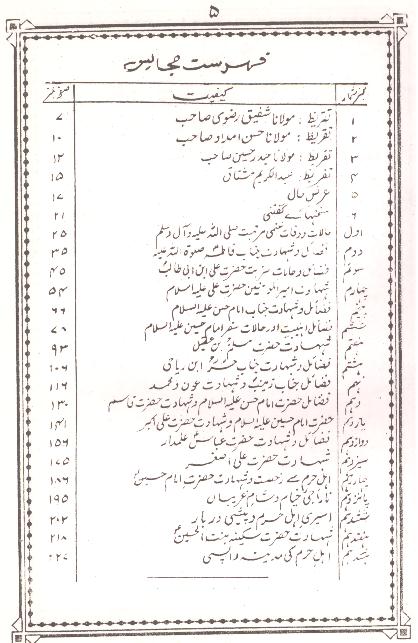 ۵
فہرست مجالس
نمبر شمار کیفیت صفحہ نمبر
۱ تقریظ : مولانا شفیق رضوی صاحب ۷
۲ تقریظ : مولانا حسن امداد صاحب ۱۰
۳ تقریظ : مولانا حیدر حسین صاحب ۱۲
۴ تقریظ : عبدالکریم مشتاق ۱۵
۵ عرض حال ۱۷
۶ سخنہائے گفتنی ۲۱
اول حالات وفات ختمی مرتبت صلی اللہ علیہ وآل وسلم ۲۵
دوم فضائل و شہادت جناب فاطمہ صلوۃ اللہ علیہ ۳۵
سوئم فضائل و حالات حضرت علی ابن ابی طالب ۴۵
چہارم شہادت امیرالمومنین حضرت علی علیہ السلام ۵۴
پنجم فضائل و شہادت جناب امام حسن علیہ السلام ۶۶
ششم فضائل اہلبیت اور حالات سفر امام حسین علیہ السلام ۷۰
ہفتم شہادت حضرت مسلم بن عقیل ۹۳
ہشتم فضائل و شہادت جناب حر ابن ریاحی ۱۰۶
نہم فضائل جناب زینب و شہادت عون و محمد ۱۱۶
دہم فضائل حضرت امام حسن علیہ السلام و شہادت حضرت قاسم ۱۳۰
یازدہم حضرت امام حسین علیہ السلام و شہادت حضرت علی اکبر ۱۴۱
دوازدہم فضائل و شہادت حضرت عباس علمدار ۱۵۶
سیزدہم شہادت حضرت علی اصغر ۱۶۵
چہاردہم اہل حرم سے رخصت و شہادت حضرت امام حسین ۱۸۶
پانزدہم تاراجی خیام و شام غریباں ۱۹۵
اسیری اہل حرم و پیشی دربار ۲۰۲
ہفتدہم شہادت حضرت سکینہ بنت الحسین ۲۱۸
ہشتدہم اہل حرم کی مدینہ واپسی ۲۲۷